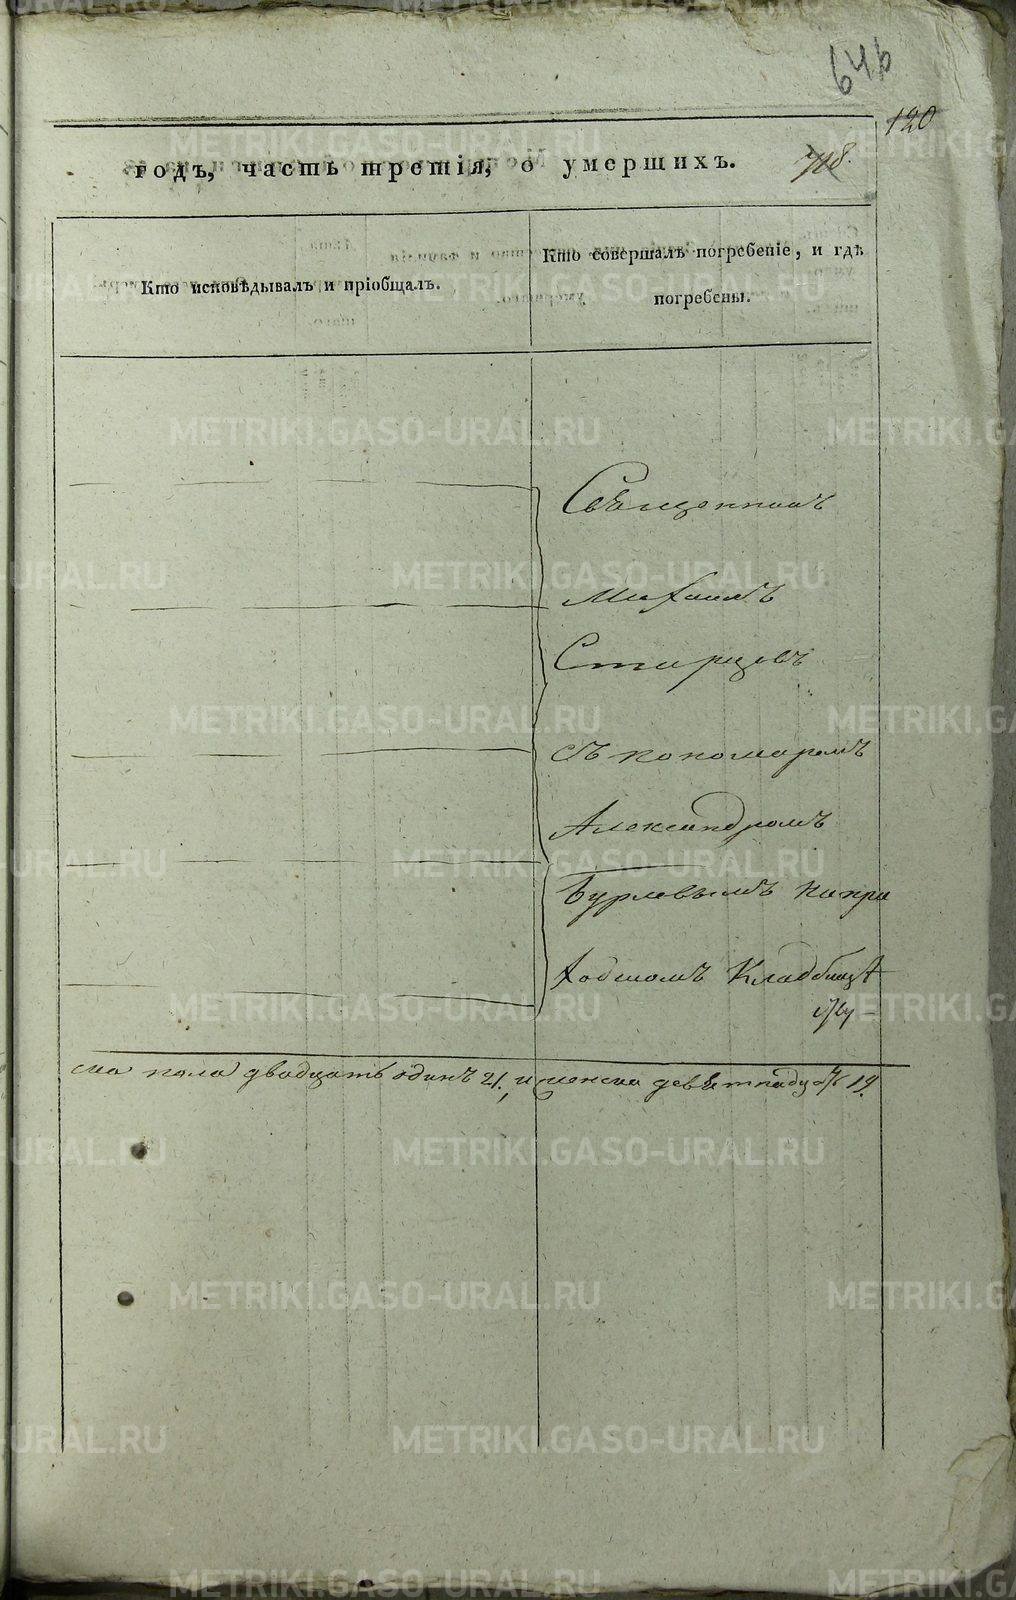 646
120
718.
годъ, часть третія, о умершихъ.
Кто исповѣдывалъ и пріобщалъ.
Кто совершалъ погребеніе, и гдѣ
погребены.
Священникъ
Михаилъ
Старцевъ
съ пономаремъ
Александромъ
Бурлевымъ на при
ходскомъ Кладбищѣ
ска пола двадцать одинъ 21, и женска девятнадцать 19.
METRIKI.GASO-URAL.RU